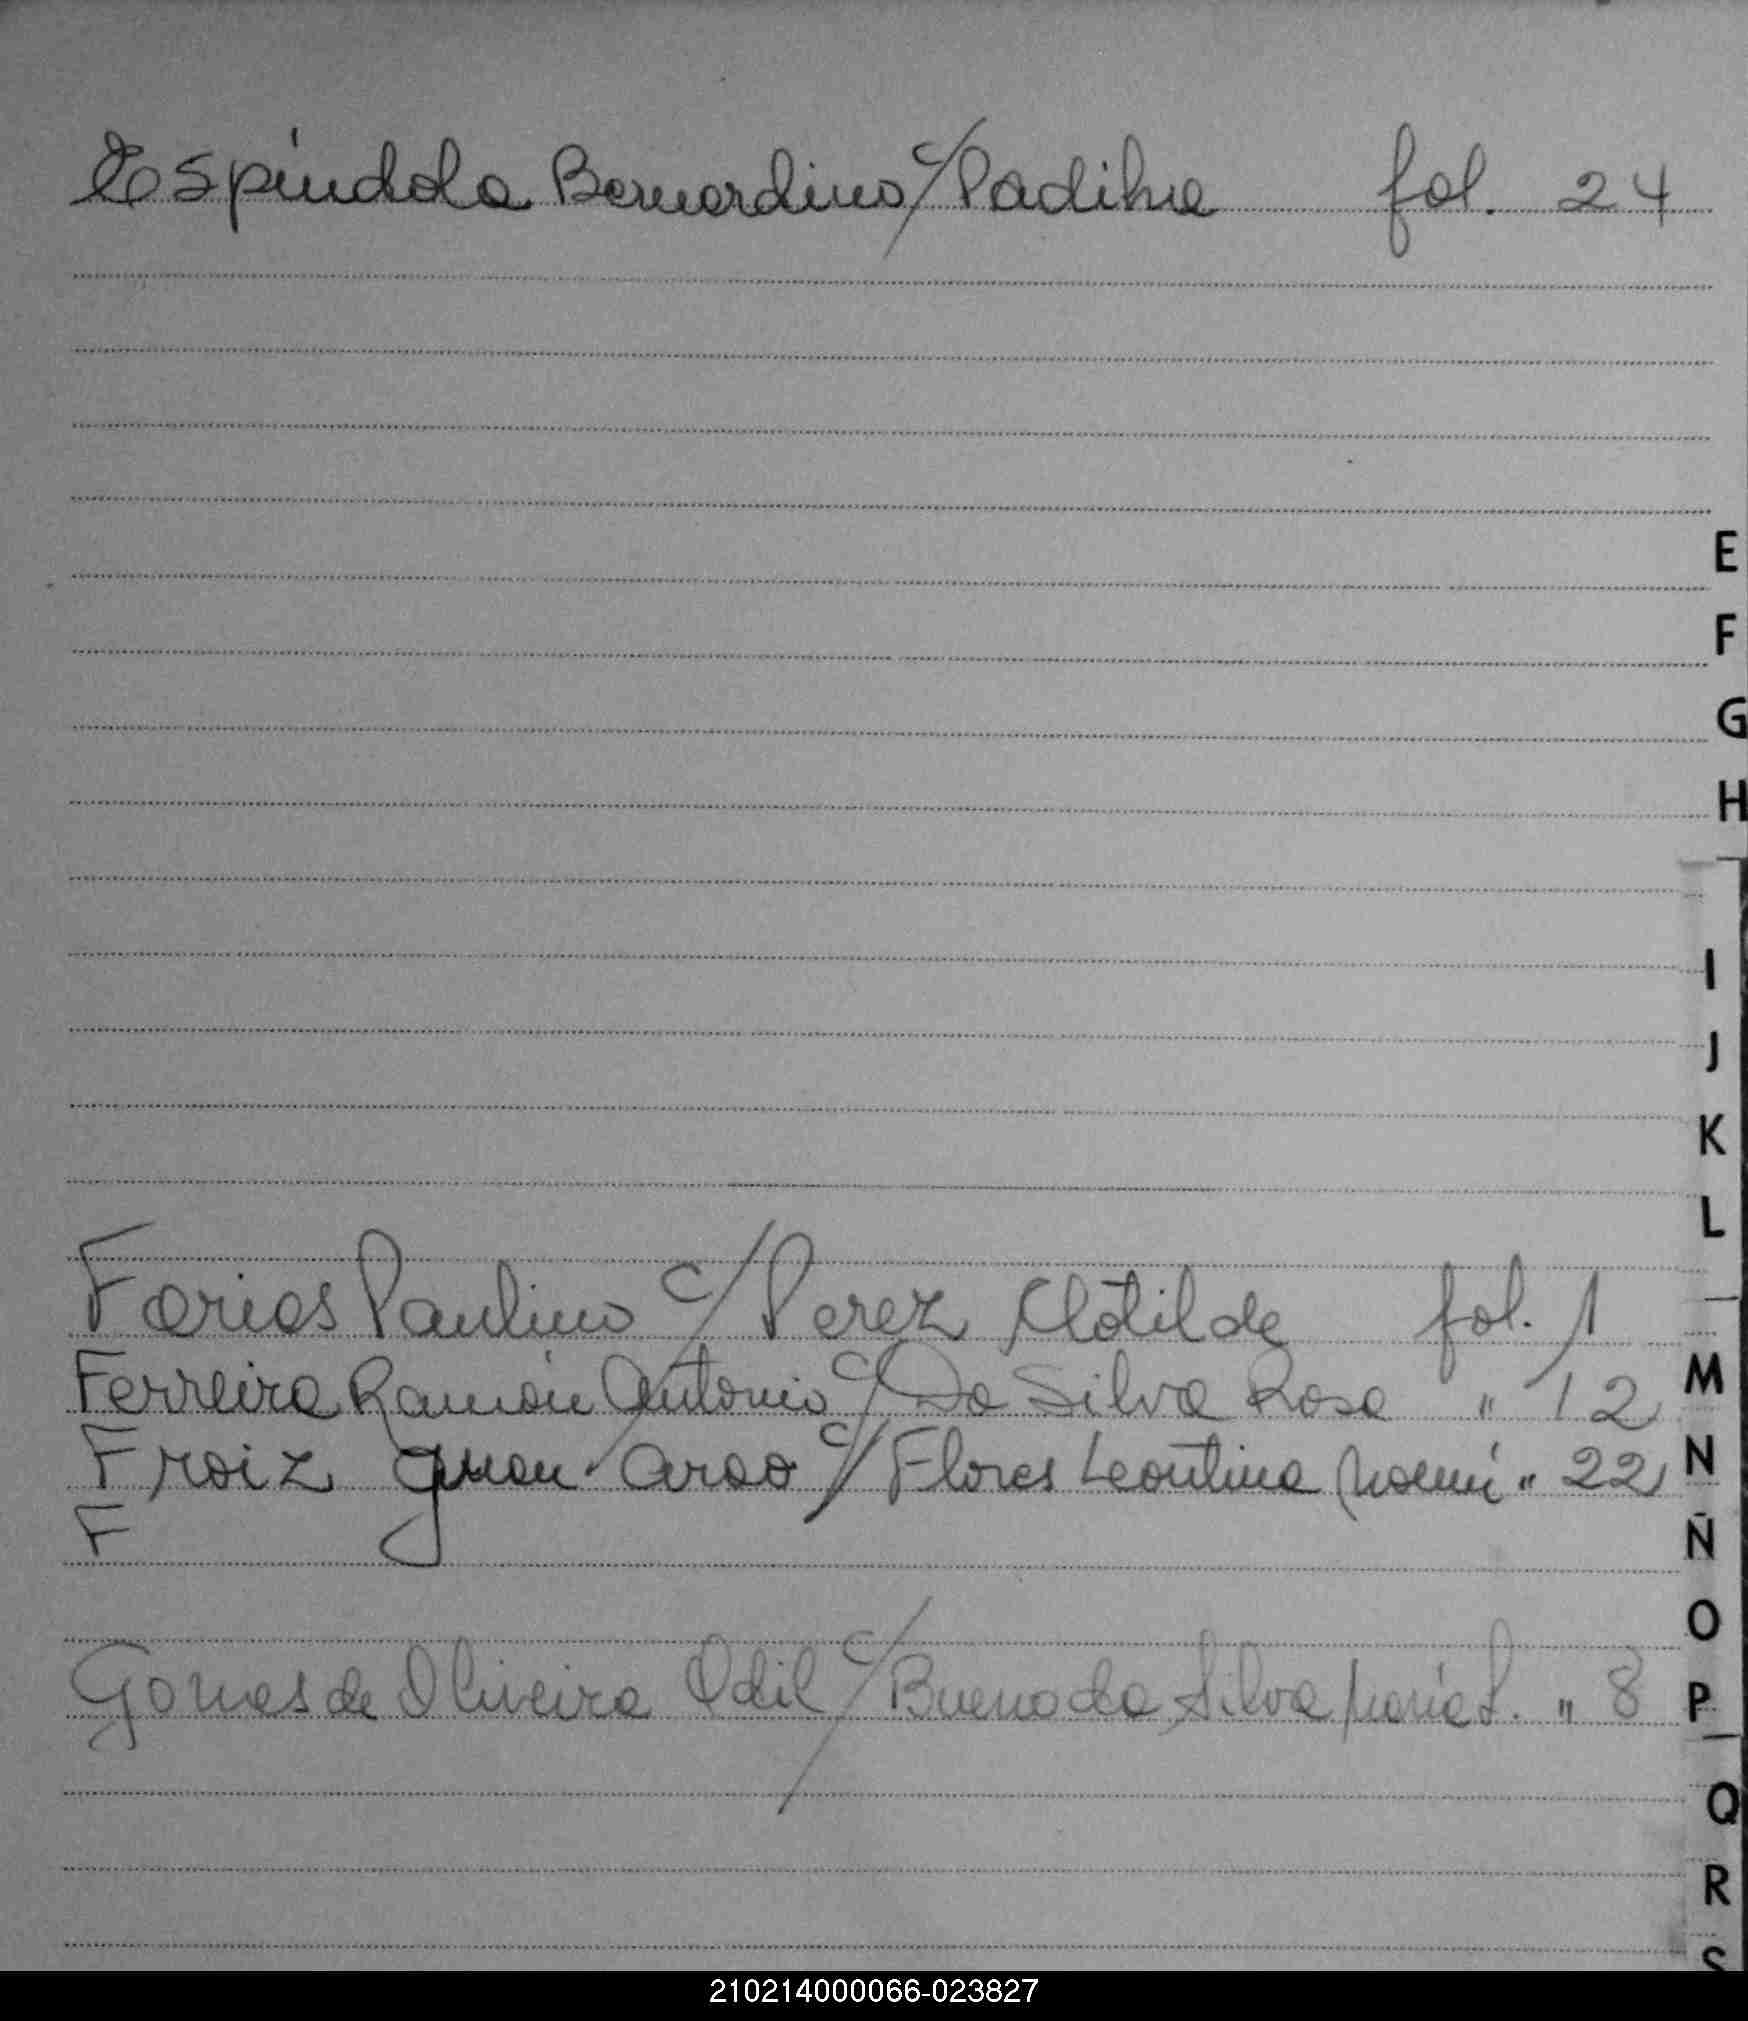 Espíndola Bernardino c/ Padilha fol. 24
E
F
G
H
I
J
K
L
Farias Paulino c/ Perez Clotilde fol. 1
Ferreira Ramón Antonio c/ Da Silva Rosa " 12
M
Froiz Juan Arao c/ Flores Leontina Noemí " 22
N
F
Ñ
O
Gomes de Oliveira Odil c/ Bueno da Silva María S. " 8
P
Q
R
S
210214000066-023827